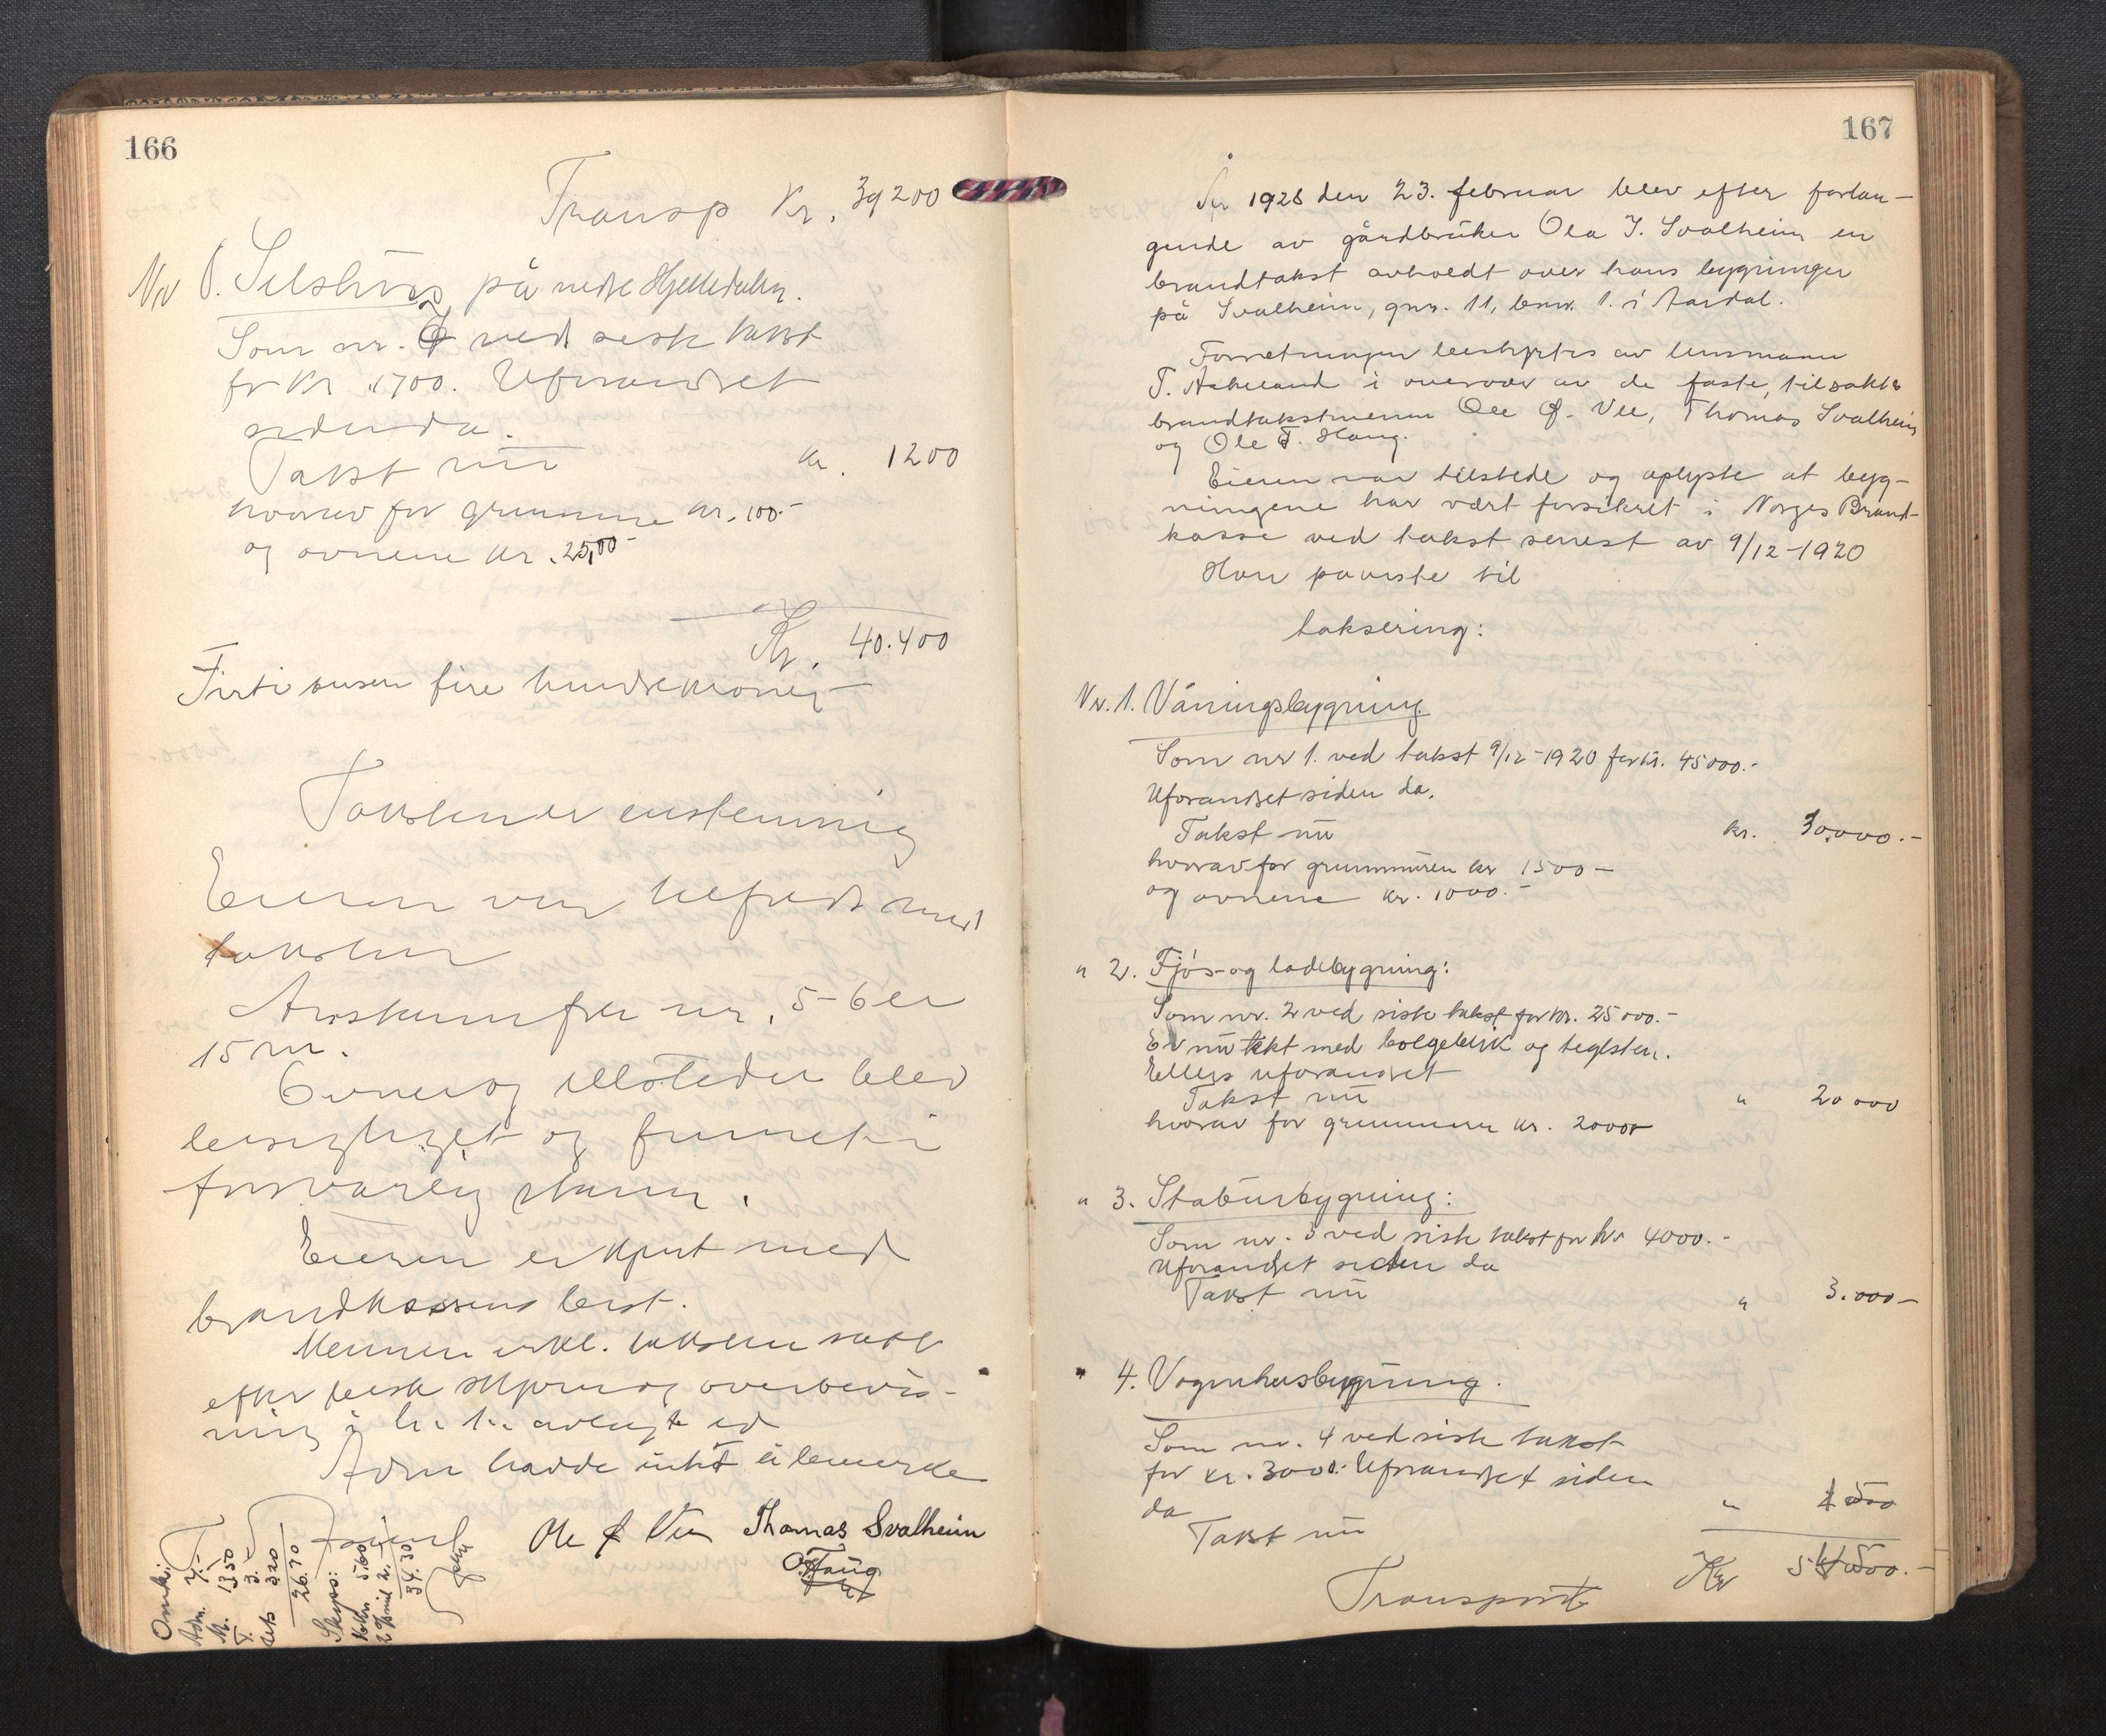 166
Transp Kr. 39200
Nr 8. Selshus på nedre Hjelledalen.
Som nr. 8 ved siste takst
for kr 1700. Uforandret
siden da.
Takst nu kr. 1200
hvorav for grunnmur kr. 100.-
og ovnene kr. 25,00-
Kr. 40.400
Firti tusen fire hundre kroner
Taksten er enstemmig
Eieren var tilfreds med
taksten
Avstanden fra nr. 5-6 er
15 m.
Ovner og ildsteder blev
besigtiget og funnet i
forsvarlig stann.
Eieren er kjent med
brandkassens best.
Mennene erkl. taksten satt
efter beste skjønn og overbevis-
ning i h. t. avlagt ed
Adm hadde intet å bemerke
Ole Ø Vee Thomas Svalheim
O. T. Haug
Omk:
Adm. 7.-
M. 13.50
T. 3.
Attb 3.20
26.70
Skyss:
5.60
2.-
34.30
167
År 1928 den 23. februar blev efter forlan-
gende av gårdbruker Ola J. Svalheim en
brandtakst avholdt over hans bygninger
på Svalheim, gnr. 11, bnr. 1. i Aardal.
Forretningen bestyrtes av lensmann
T. Askeland i overvær av de faste, tilsatte
brandtakstmenn Ole Ø. Vee, Thomas Svalheim
og Ole T. Haug.
Eieren var tilstede og oplyste at byg-
ningene har vært forsikret i Norges Brand-
kasse ved takst senest av 9/12-1920
Han påviste til
taksering:
Nr. 1. Våningsbygning
Som nr 1. ved takst 9/12-1920 for kr. 45000.-
Uforandret siden da.
Takst nu kr. 30.000.-
hvorav for grunnmuren kr 1500-
og ovnene kr. 1000.-
" 2. Fjøs- og ladebygning:
Som nr. 2 ved siste takst for kr. 25000.-
Er nu tekt med bølgeblikk og teglsten.
Ellers uforandret
Takst nu " 20000
hvorav for grunnmuren kr. 2000
" 3. Stabursbygning:
Som nr. 3 ved siste takst for kr 4000.-
Uforandret siden da
Takst nu " 3.000-
" 4. Vognhusbygning.
Som nr. 4 ved siste takst
for kr. 3000.- Uforandret siden
da
Takst nu " 1500
Transport Kr 54500.-